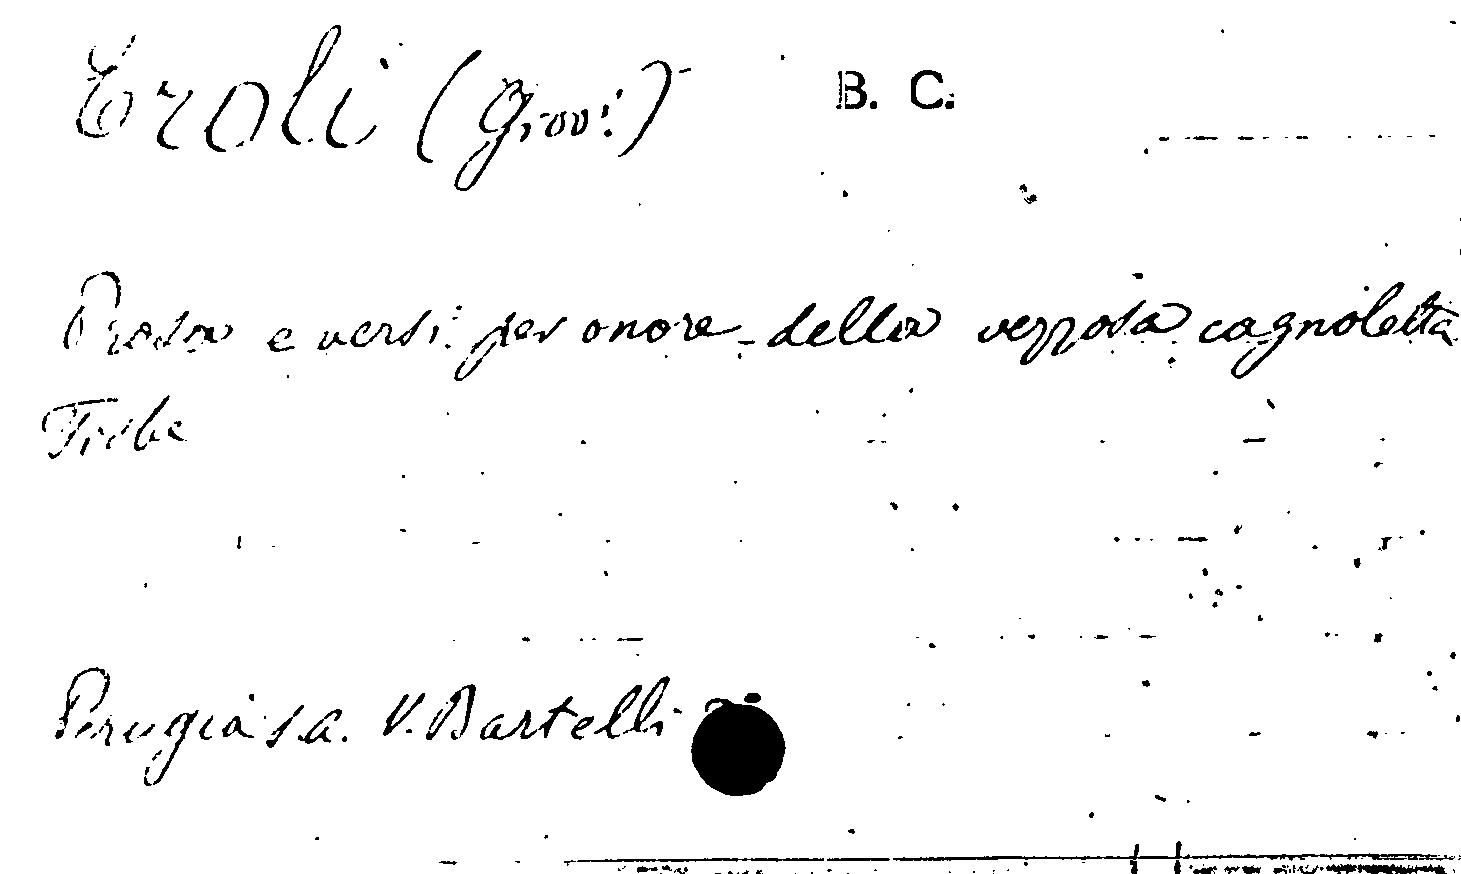 Eroli (Giov:) B. C.
Prosa e versi per onore della vezzosa cagnoletta
Perugia s.a. V. Bartelli